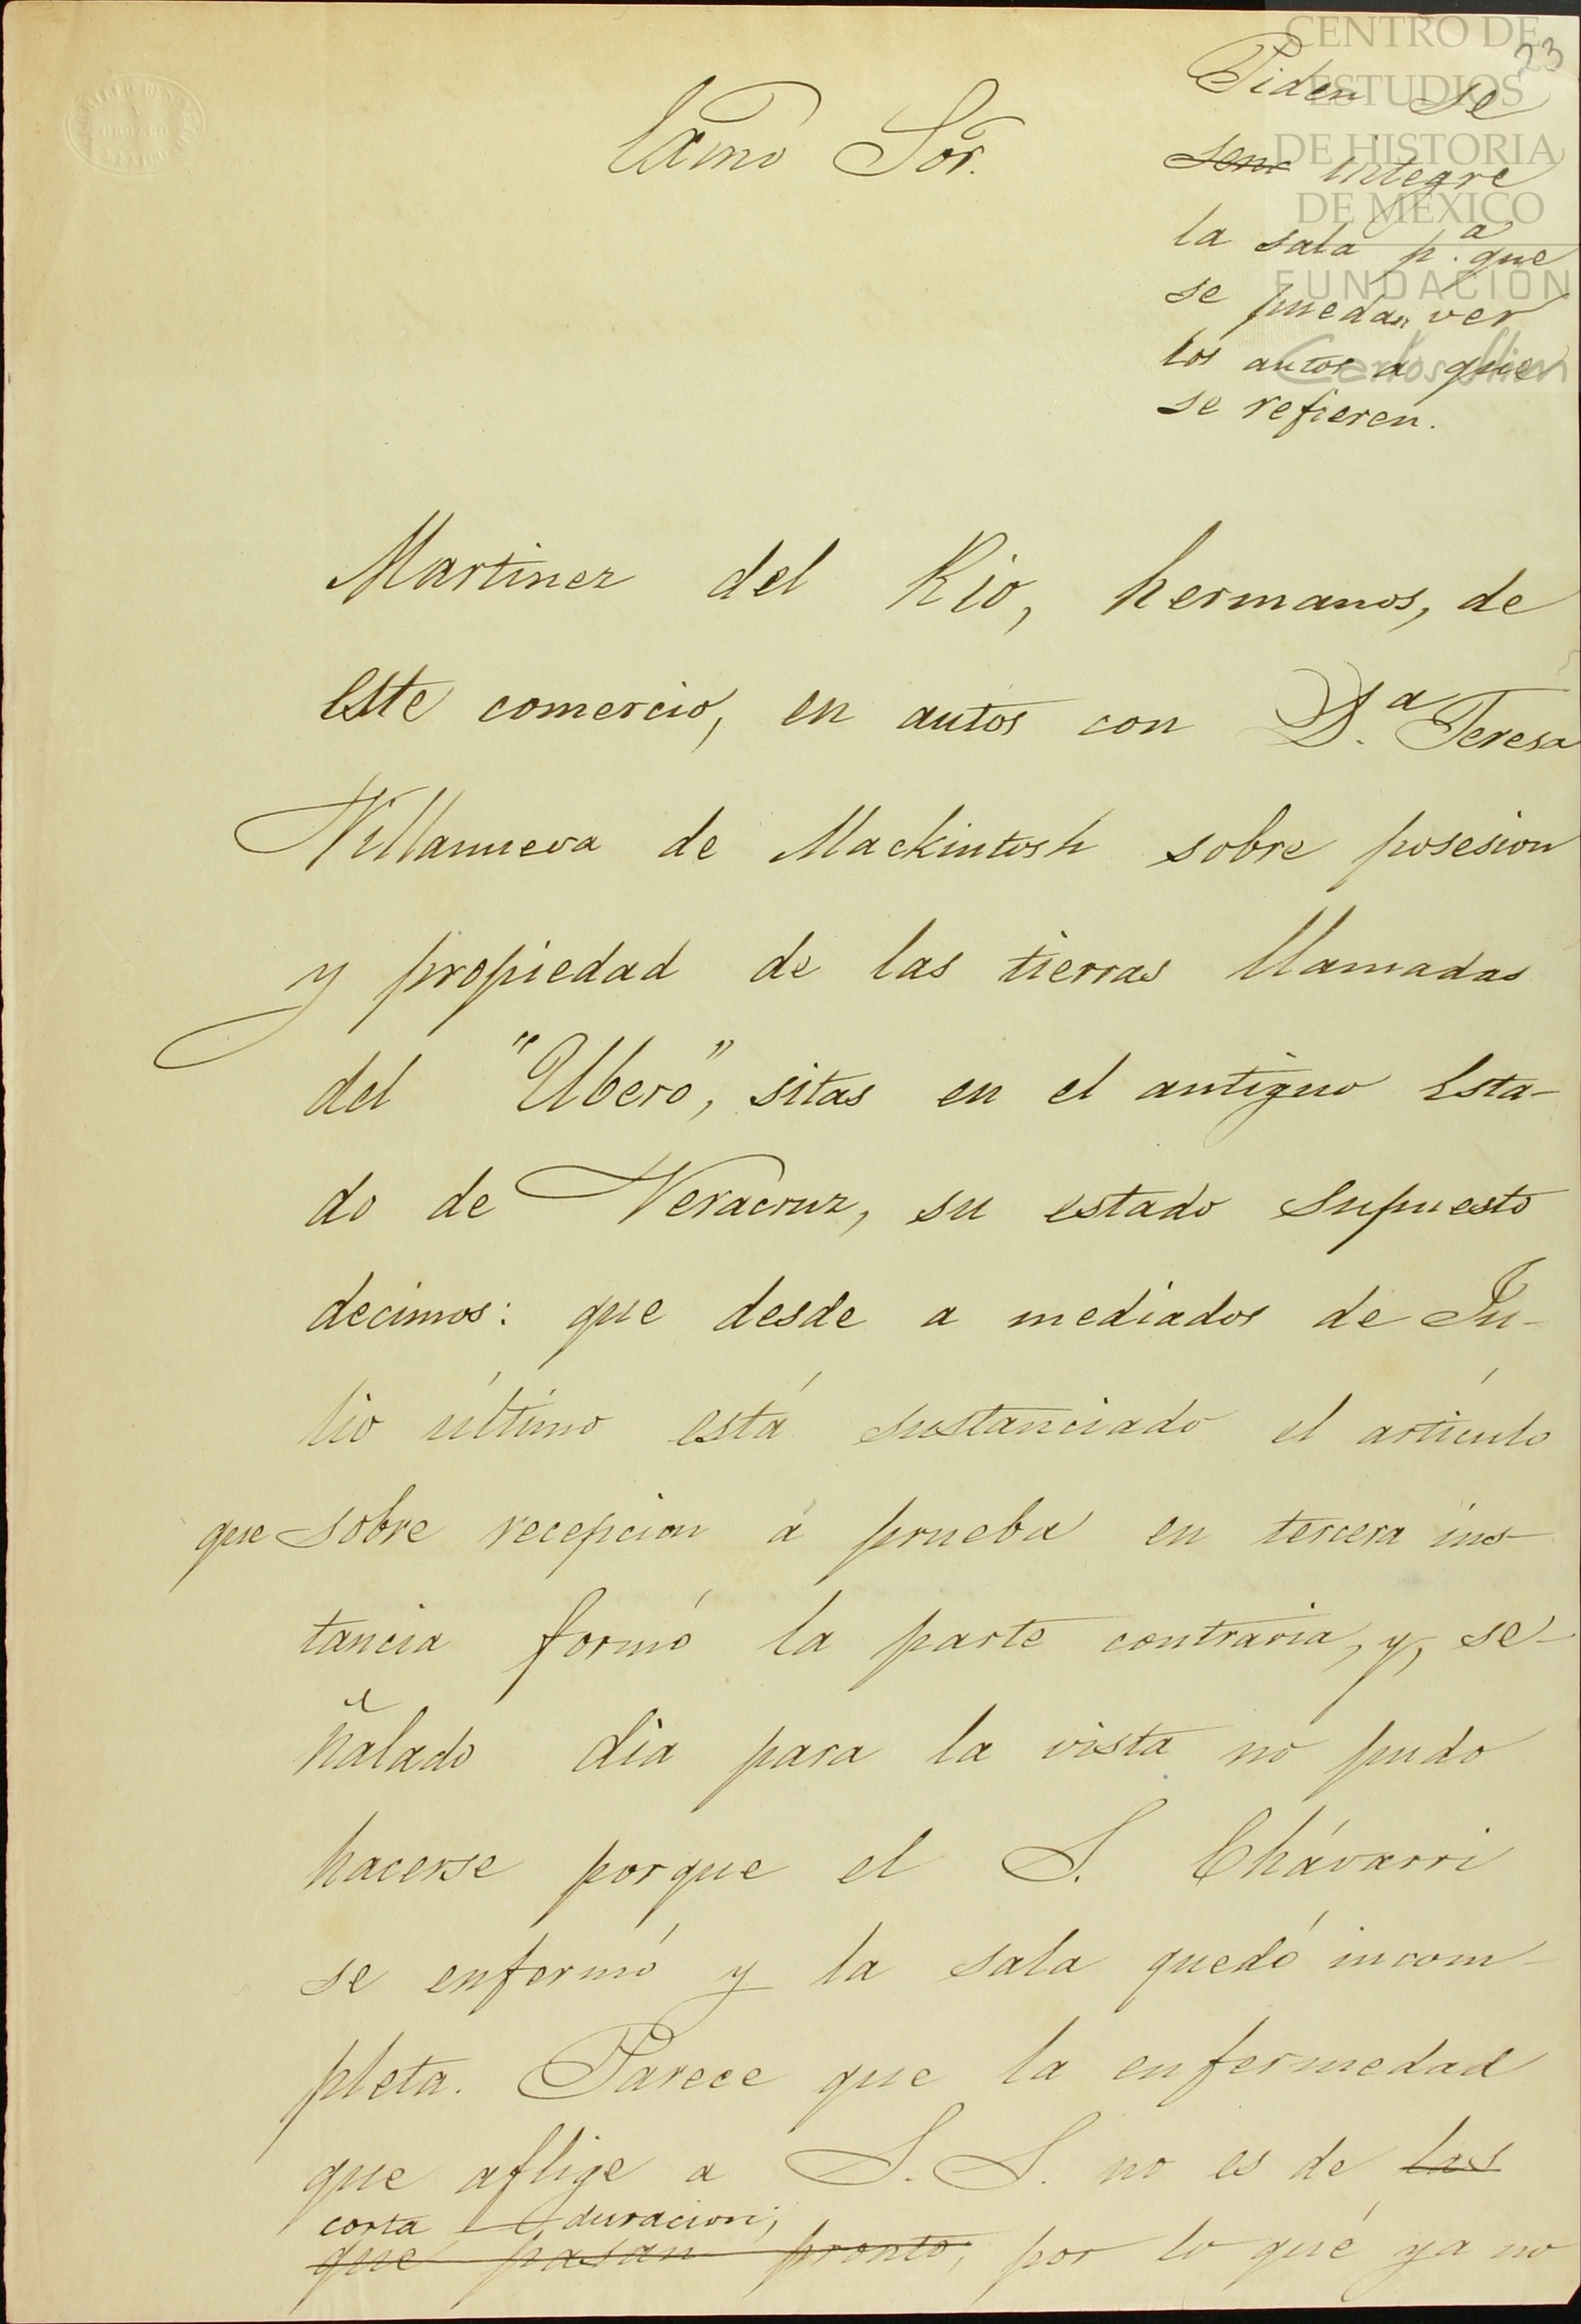 23
Exmo Sór.
Piden se
senr integre
la sala p.ª que
se puedan ver
los autos a que
se refieren.
CENTRO DE
ESTUDIOS
DE HISTORIA
DE MÉXICO
FUNDACIÓN
Carlos Slim
Martinez del Rio, hermanos, de
este comercio, en autos con D.ª Teresa
Villanueva de Mackintosh sobre posesion
y propiedad de las tierras llamadas
del "Ubero", sitas en el antiguo Esta-
do de Veracruz, su estado supuesto
decimos: que desde a mediados de Ju-
lio último está sustanciado el artículo
que sobre recepcion á prueba en tercera ins-
tancia formó la parte contraria, y, se-
ñalado dia para la vista no pudo
hacerse porque el S. Chávarri
se enfermó y la sala quedó incom-
pleta. Parece que la enfermedad
que aflige a S. S. no es de las
corta duracion;
que pasan pronto, por lo qué ya no